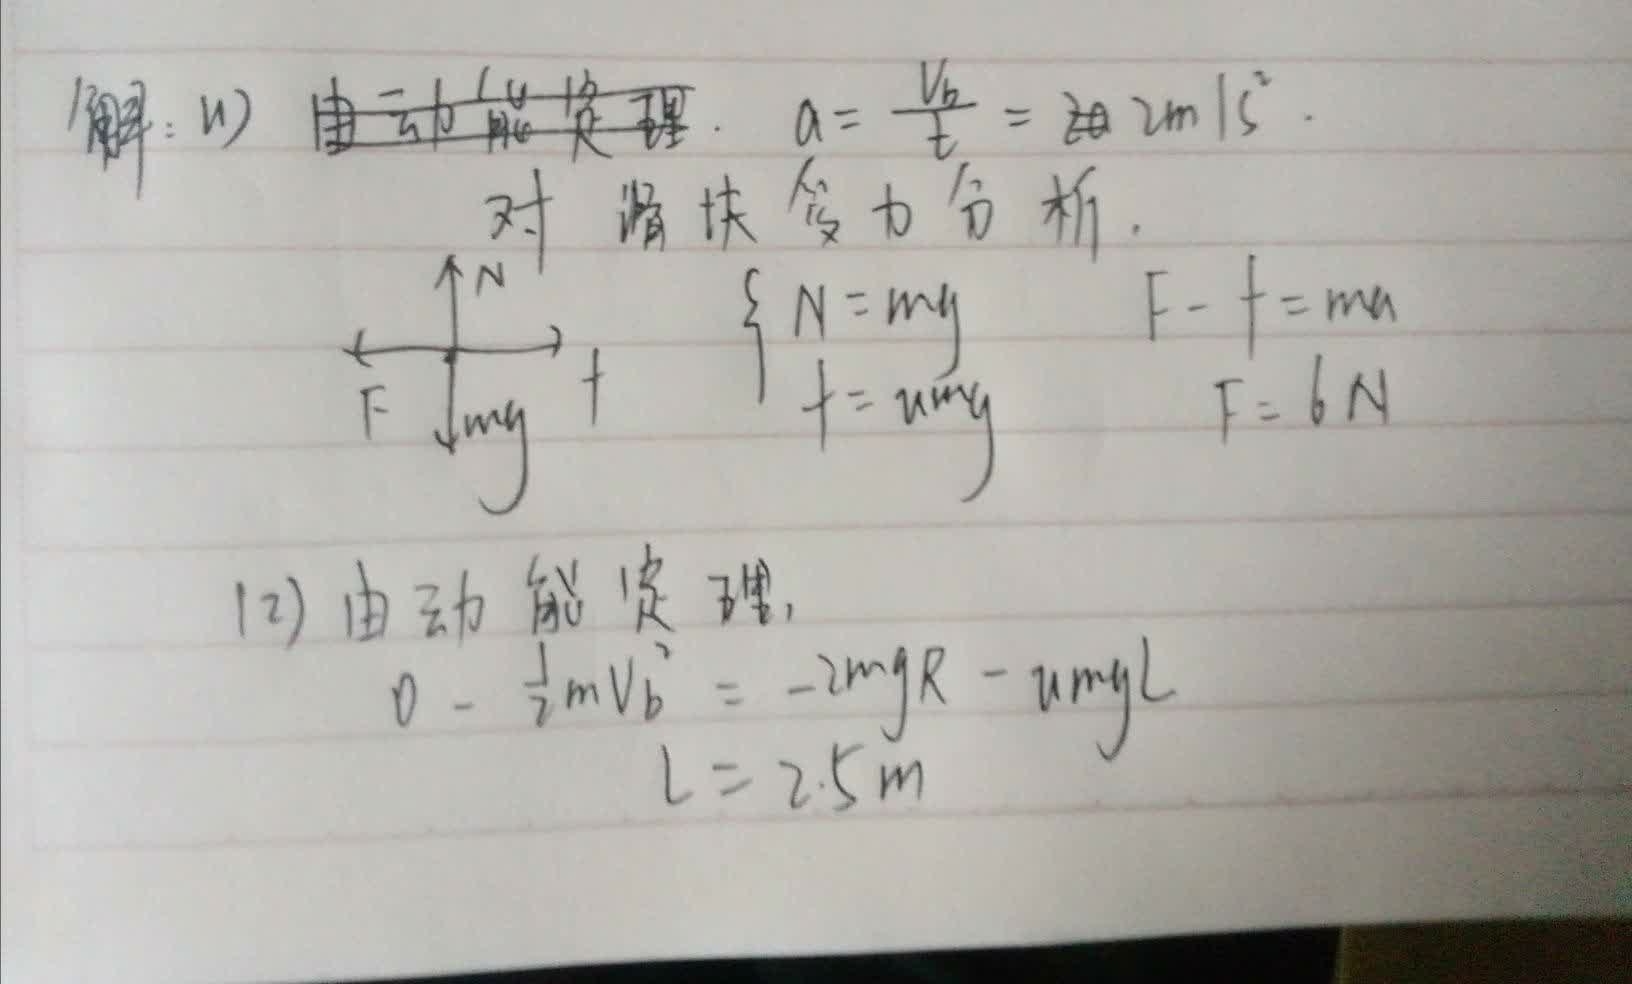 解：(1) 由动能定理. a = Vb/t = 2m/s².
对滑块受力分析.
N
{ N = mg F - f = ma
F mg f f = umg F = 6N
(2) 由动能定理,
0 - 1/2 mVb² = -2mgR - umgL
L = 2.5m